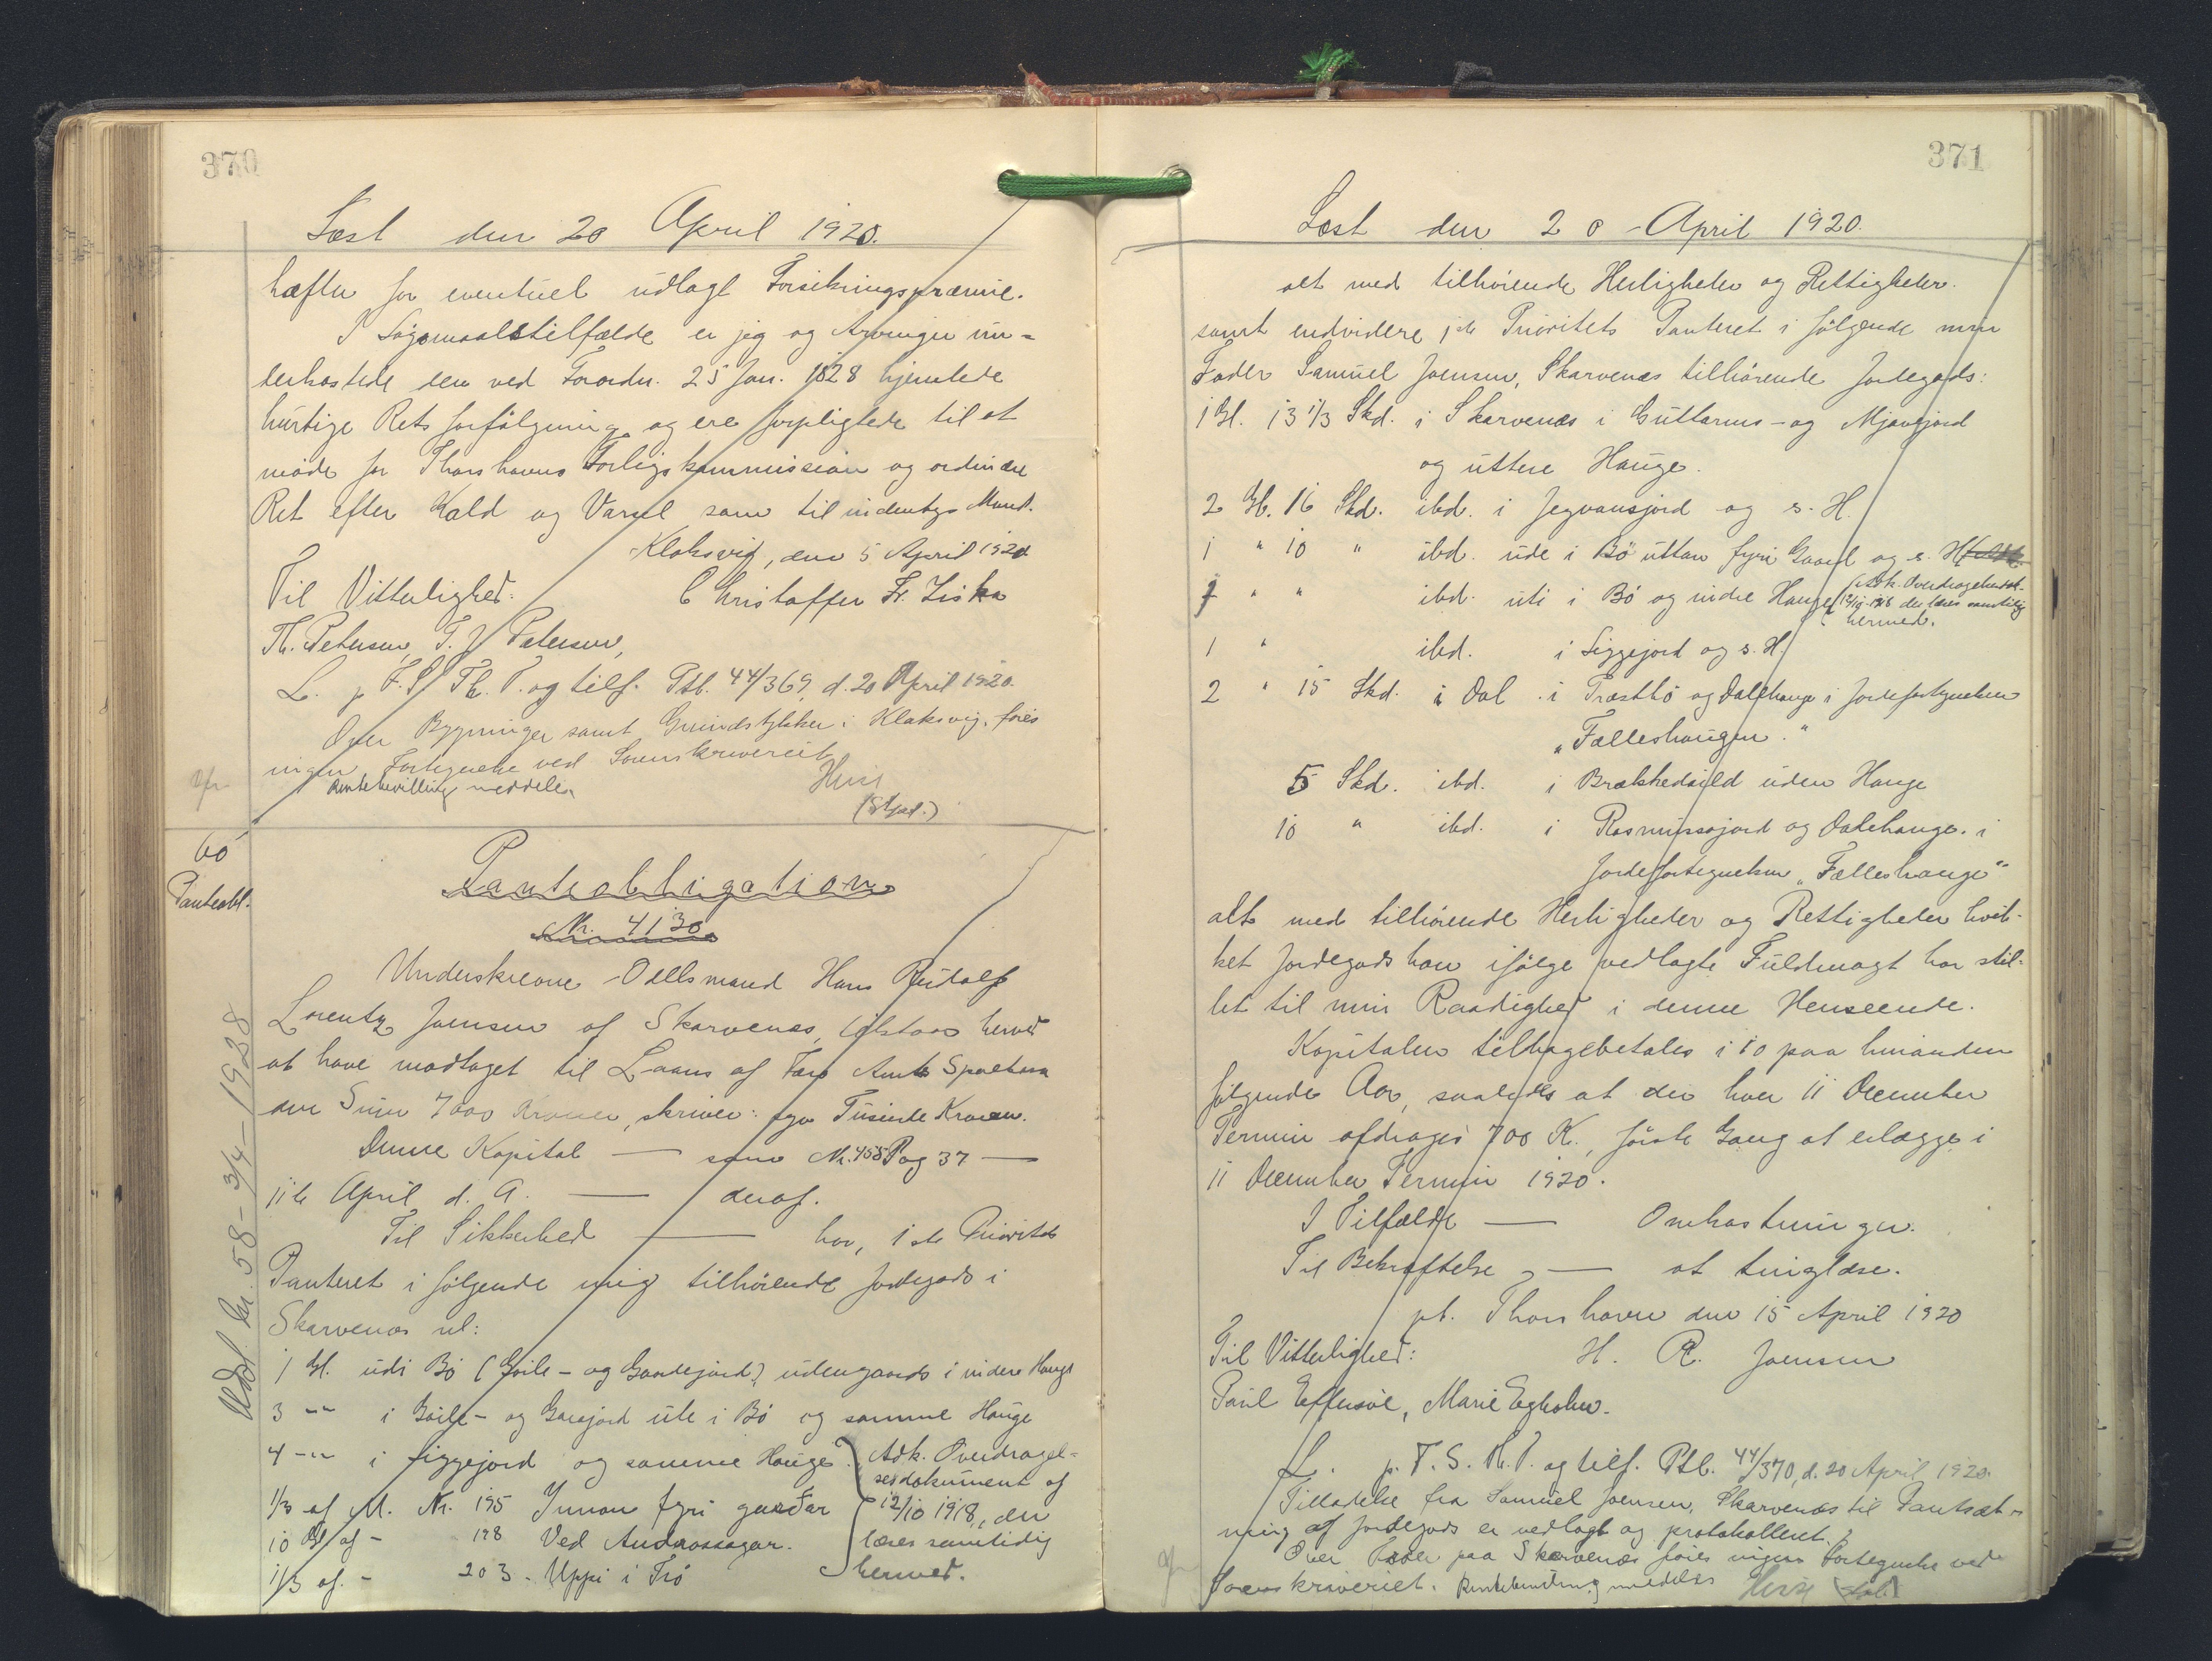 370
Læst den 20 April 1920.
hæfter for eventuel udlagt Forsikringspræmie.
I Søgsmaalstilfælde er jeg og Arvinger un-
derkastede den ved Forordn. 25 Jan. 1828 hjemlede
hurtige Rets forfølgning og ere forpligtede til at
møde for Thorshavns Forligskommission og ordinære
Ret efter Kald og Varsel som til indenbys Mand.
Klaksvig, den 5 April 1920
Til Vitterlighed. Christoffer Fr. Ziska
Th. Petersen, T. J. Petersen,
L. p. F. S. Th. P. og tilf. Ptb. 44/369, d. 20 April 1920.
Over Bygninger samt Grundstykker i Klaksvig, føres
ingen Fortegnelse ved Sorenskriveriet
Rentebevilling meddeles
(Stpl.)
60
Panteobl.
Panteobligation
Nr. 4130
Underskrevne Odelsmand Hans Rudolf
Lorentz Joensen af Skarvenæs, tilstaar herved
at have modtaget til Laans af Færø Amts Sparekasse
den Sum 7000 Kroner, skriver: syv Tusinde Kroner.
Denne Kapital — som Nr. 458 Pag 37 —
11te April d. A. — deraf.
Til Sikkerhed — hav, 1ste Prioritets
Panteret i følgende mig tilhørende Jordegods i
Skarvenæs nl:
1 Gl. udi Bø (Goile- og Gaardejord) udengaards i indere Hauge
3 -"- i Goile- og Garejord ute i Bø og samme Hauge
4 -"- i Liggejord og samme Hauge.
Adk. Overdragel-
sesdokument af
12/10 1918, der
læses samtidig
hermed.
1/3 af M. Nr. 195 Innan fyri gardar
10 Gl af - 198 Ved Andrassagar.
1/3 af. - 203 - Uppi i Trø
Udsl. Nr. 58 - 3/4 - 1928
371
Læst den 20 April 1920.
alt med tilhørende Herligheder og Rettigheder.
samt endvidere 1ste Prioritets Panteret i følgende min
Fader Samuel Joensen, Skarvenæs tilhørende Jordegods:
1 Gl. 13 1/3 Skd. i Skarvenæs i Guttarms- og Mjavajord
og uttere Hauge.
2 Gl. 16 Skd. ibd. i Jegvansjord og s. H.
1 " 10 " ibd. ude i Bø uttan fyri Gaard og s. H
1 " " ibd. uti i Bø og indre Hauge (Adk. Overdragelsesdok.
12/10-1918 der læses samtidig
hermed.
1 " ibd. i Liggejord og s. H.
2 " 15 Skd. i Dal i Træsttø og Dalshauge i Jordefortegnelsen
"Fælleshaugen."
5 Skd. ibd. i Brækkedsild uden Hauge
10 " ibd. i Rasmussajord og Dalehauge. i
Jordefortegnelsen "Fælleshauge"
alt med tilhørende Herligheder og Rettigheder hvil-
ket Jordegods han ifølge vedlagte Fuldmagt har stil-
let til min Raadighed i denne Henseende.
Kapitalen tilbagebetales i 10 paa hinanden
følgende Aar, saaledes at der hver 11 December
Termin afdrages 700 K., første Gang at erlægge i
11 December Termin 1920.
I Tilfælde — Omkostninger.
Til Bekræftelse — at tinglæse.
pt. Thorshavn den 15 April 1920
Til Vitterlighed: H. R. Joensen
Paul Effersøe, Marie Egholm.
L. p. F. S. Th. P. og tilf. Ptb. 44/370, d. 20 April 1920.
Tilladelse fra Samuel Joensen, Skarvenæs til Pantsæt-
ning af Jordegods er vedlagt og protokolleret.
Over Jorder paa Skarvenæs føres ingen Fortegnelse ved
Sorenskriveriet. Rentebevilling meddeles